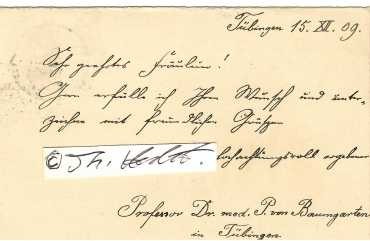 Tübingen 15. XII. 09.
Sehr geehrtes Fräulein!
Gern erfülle ich Ihren Wunsch und unter-
zeichne mit freundlichen Grüßen
hochachtungsvoll ergebener
Professor Dr. med. P. von Baumgarten
in Tübingen